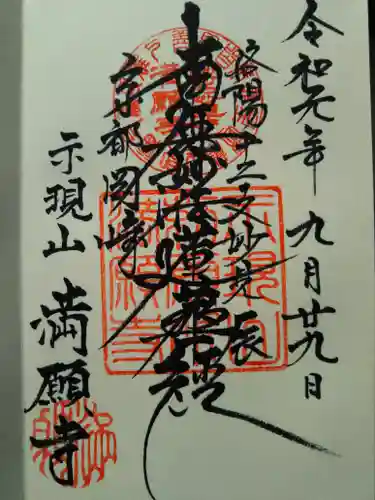 令和元年九月廿九日
洛陽十二支妙見 辰
南無妙法蓮華経
京都岡崎
示現山 満願寺